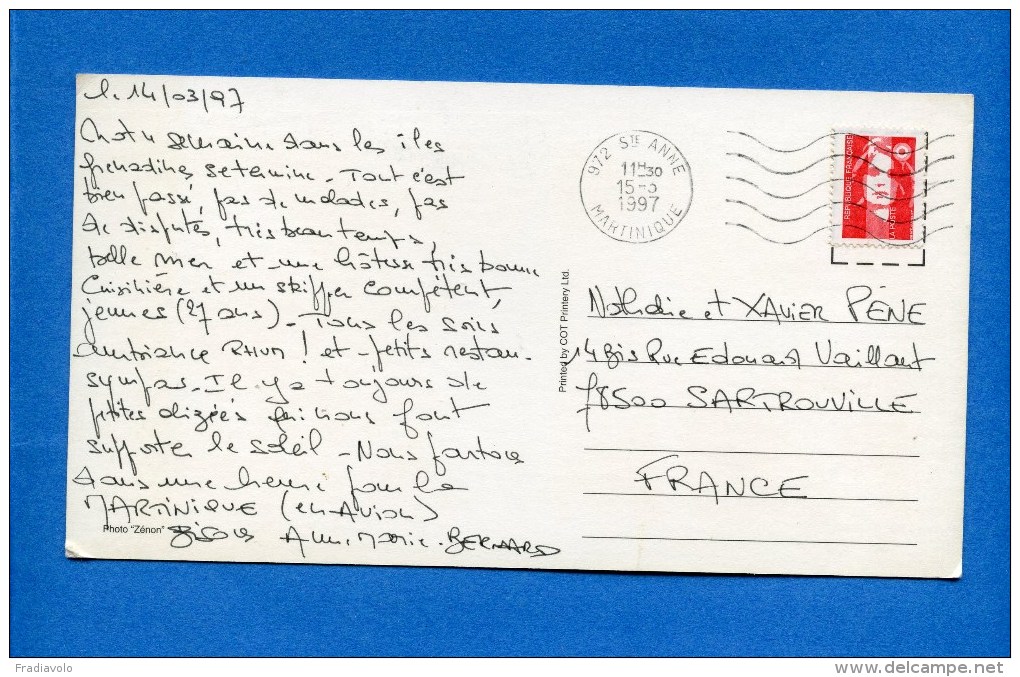 le 14/03/97
Notre semaine dans les îles
Grenadines se termine - Tout c'est
bien passé, pas de malades, pas
de disputes, très beau temps,
belle mer et une hôtesse très bonne
Cuisinière et un skipper compétent,
jeunes (27 ans) - Tous les soirs
ambiance RHUM ! et petits restau.
sympas - Il y a toujours de
petites alizées qui nous font
supporter le soleil - Nous partons
dans une heure pour la
MARTINIQUE (en AVION)
Bisous Annie Marie - BERNARD
Photo "Zénon"
Printed by COT Printery Ltd.
972 STE ANNE
11H30
15-3
1997
MARTINIQUE
REPUBLIQUE FRANÇAISE
LA POSTE
Nathalie et XAVIER PÈNE
14 bis Rue Edouard Vaillant
78500 SARTROUVILLE
FRANCE
Fradiavolo
www.delcampe.net